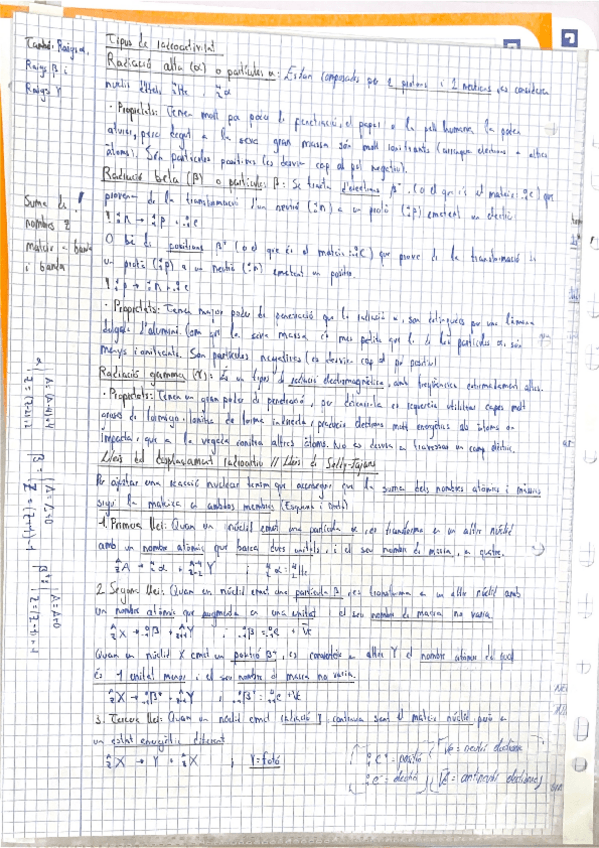 També: Raigs α,
Raigs β i
Raigs γ
Tipus de radioactivitat
Radiació alfa (α) o partícules α: Estan composades per 2 protons i 2 neutrons, es considera
nuclis d'heli, ⁴₂He, ⁴₂α
· Propietats: Tenen molt poc poder de penetració, el paper o la pell humana la poden
aturar, però degut a la seva gran massa són molt ionitzants (arranquen electrons a altres
àtoms). Són partícules positives (es desvien cap al pol negatiu).
Radiació beta (β) o partícules β: Se tracta d'electrons β⁻ (o el que és el mateix ⁰₋₁e) que
provenen de la transformació d'un neutró (¹₀n) a un protó (¹₁p) emetent un electró
! ¹₀n → ¹₁p + ⁰₋₁e
O bé de positrons β⁺ (o el que és el mateix ⁰₁e) que prové de la transformació de
un protó (¹₁p) a un neutró (¹₀n) emetent un positró.
! ¹₁p → ¹₀n + ⁰₁e
Suma de !
nombres
mateix a banda
i banda
· Propietats: Tenen major poder de penetració que la radiació α, son per una làmina
delgada d'alumini. Com que la seva massa és més petita que la de les partícules α, són
menys ionitzants. Son partícules negatives (es desvien cap al pol positiu)
Radiació gamma (γ): És un tipus de radiació electromagnètica, amb freqüències extremadament altes.
· Propietats: Tenen un gran poder de penetració, per es requereix utilitzar capes molt
gruixs de formigó. Ionitza de forma indirecta, produeix electrons molt energètics als àtoms on
impacta, que a la vegada ionitza altres àtoms. No es desvia a travessar un camp elèctric.
Lleis del desplaçament radioactiu // Lleis de Soddy-Fajans
Per ajustar una reacció nuclear tenim que aconseguir que la suma dels nombres atòmics i màssics
sigui la mateixa en ambdós membres
1. Primera llei: Quan un núclid emet una partícula α, es transforma en un altre núclid
amb un nombre atòmic que baixa dues unitats, i el seu nombre de massa, en quatre.
2. Segona llei: Quan un núclid emet una partícula β, es transforma a un altre núclid amb
un nombre atòmic que augmenta en una unitat i el seu nombre de massa no varia.
Quan un núclid X emet un positró β⁺, es converteix en altre Y el nombre atòmic del qual
és 1 unitat menor i el seu nombre de massa no varia.
3. Tercera llei: Quan un núclid emet radiació γ, continua sent el mateix núclid però a
un estat energètic diferent
γ = fotó
⁰₁e⁺ = positró
⁰₋₁e⁻ = electró
νe = neutrí electrònic
ν̄e = antineutrí electrònic